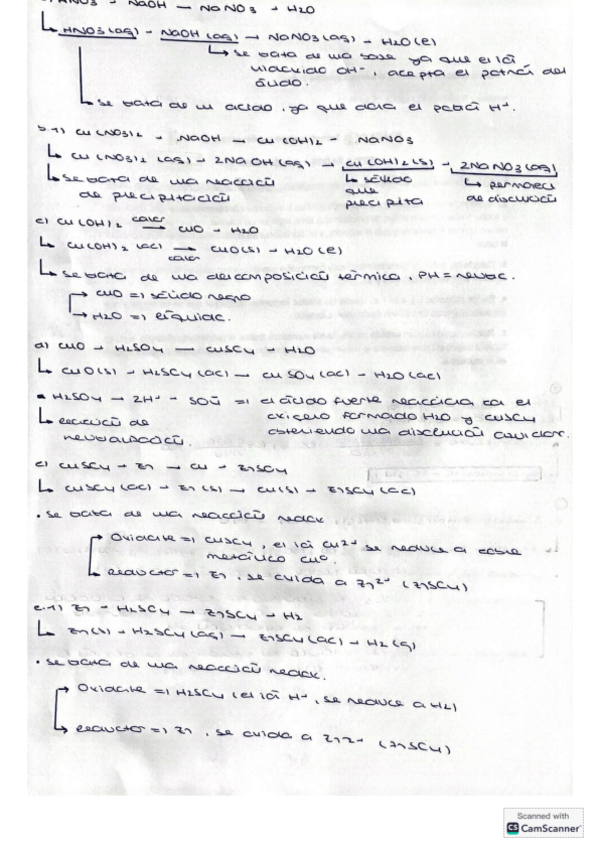 HNO3 - NaOH — NaNO3 + H2O
HNO3(aq) - NaOH(aq) → NaNO3(aq) - H2O(l)
Se trata de una base ya que el ión
OH-, acepta el protón del
ácido.
Se trata de un ácido, ya que dona el protón H+.
b-1) Cu(NO3)2 - NaOH — Cu(OH)2 - NaNO3
Cu(NO3)2(aq) - 2NaOH(aq) → Cu(OH)2(s) - 2NaNO3(aq)
Se trata de una reacción de precipitación
sólido que precipita
de disolución
c) Cu(OH)2 calor → CuO - H2O
Cu(OH)2(ac) calor → CuO(s) - H2O(l)
Se trata de una descomposición térmica. PH = neutro.
CuO => sólido negro
H2O => líquido.
d) CuO - H2SO4 — CuSO4 - H2O
CuO(s) - H2SO4(ac) → CuSO4(ac) - H2O(ac)
H2SO4 → 2H+ - => el ácido fuerte reacciona con el
oxígeno formando H2O y CuSO4
obteniendo una disolución
reacción de
neutralización.
e) CuSO4 + Zn → Cu - ZnSO4
CuSO4(ac) - Zn(s) → Cu(s) - ZnSO4(ac)
. Se trata de una reacción redox
Oxidante => CuSO4, el ión Cu2+ se reduce a cobre
metálico
Reductor => Zn, se oxida a Zn2+ (ZnSO4)
e-1) Zn - H2SO4 → ZnSO4 - H2
Zn(s) - H2SO4(aq) → ZnSO4(ac) - H2(g)
. Se trata de una reacción redox.
Oxidante => H2SO4 (el ión H+, se reduce a H2)
Reductor => Zn, se oxida a Zn2+ (ZnSO4)
Scanned with
CS CamScanner